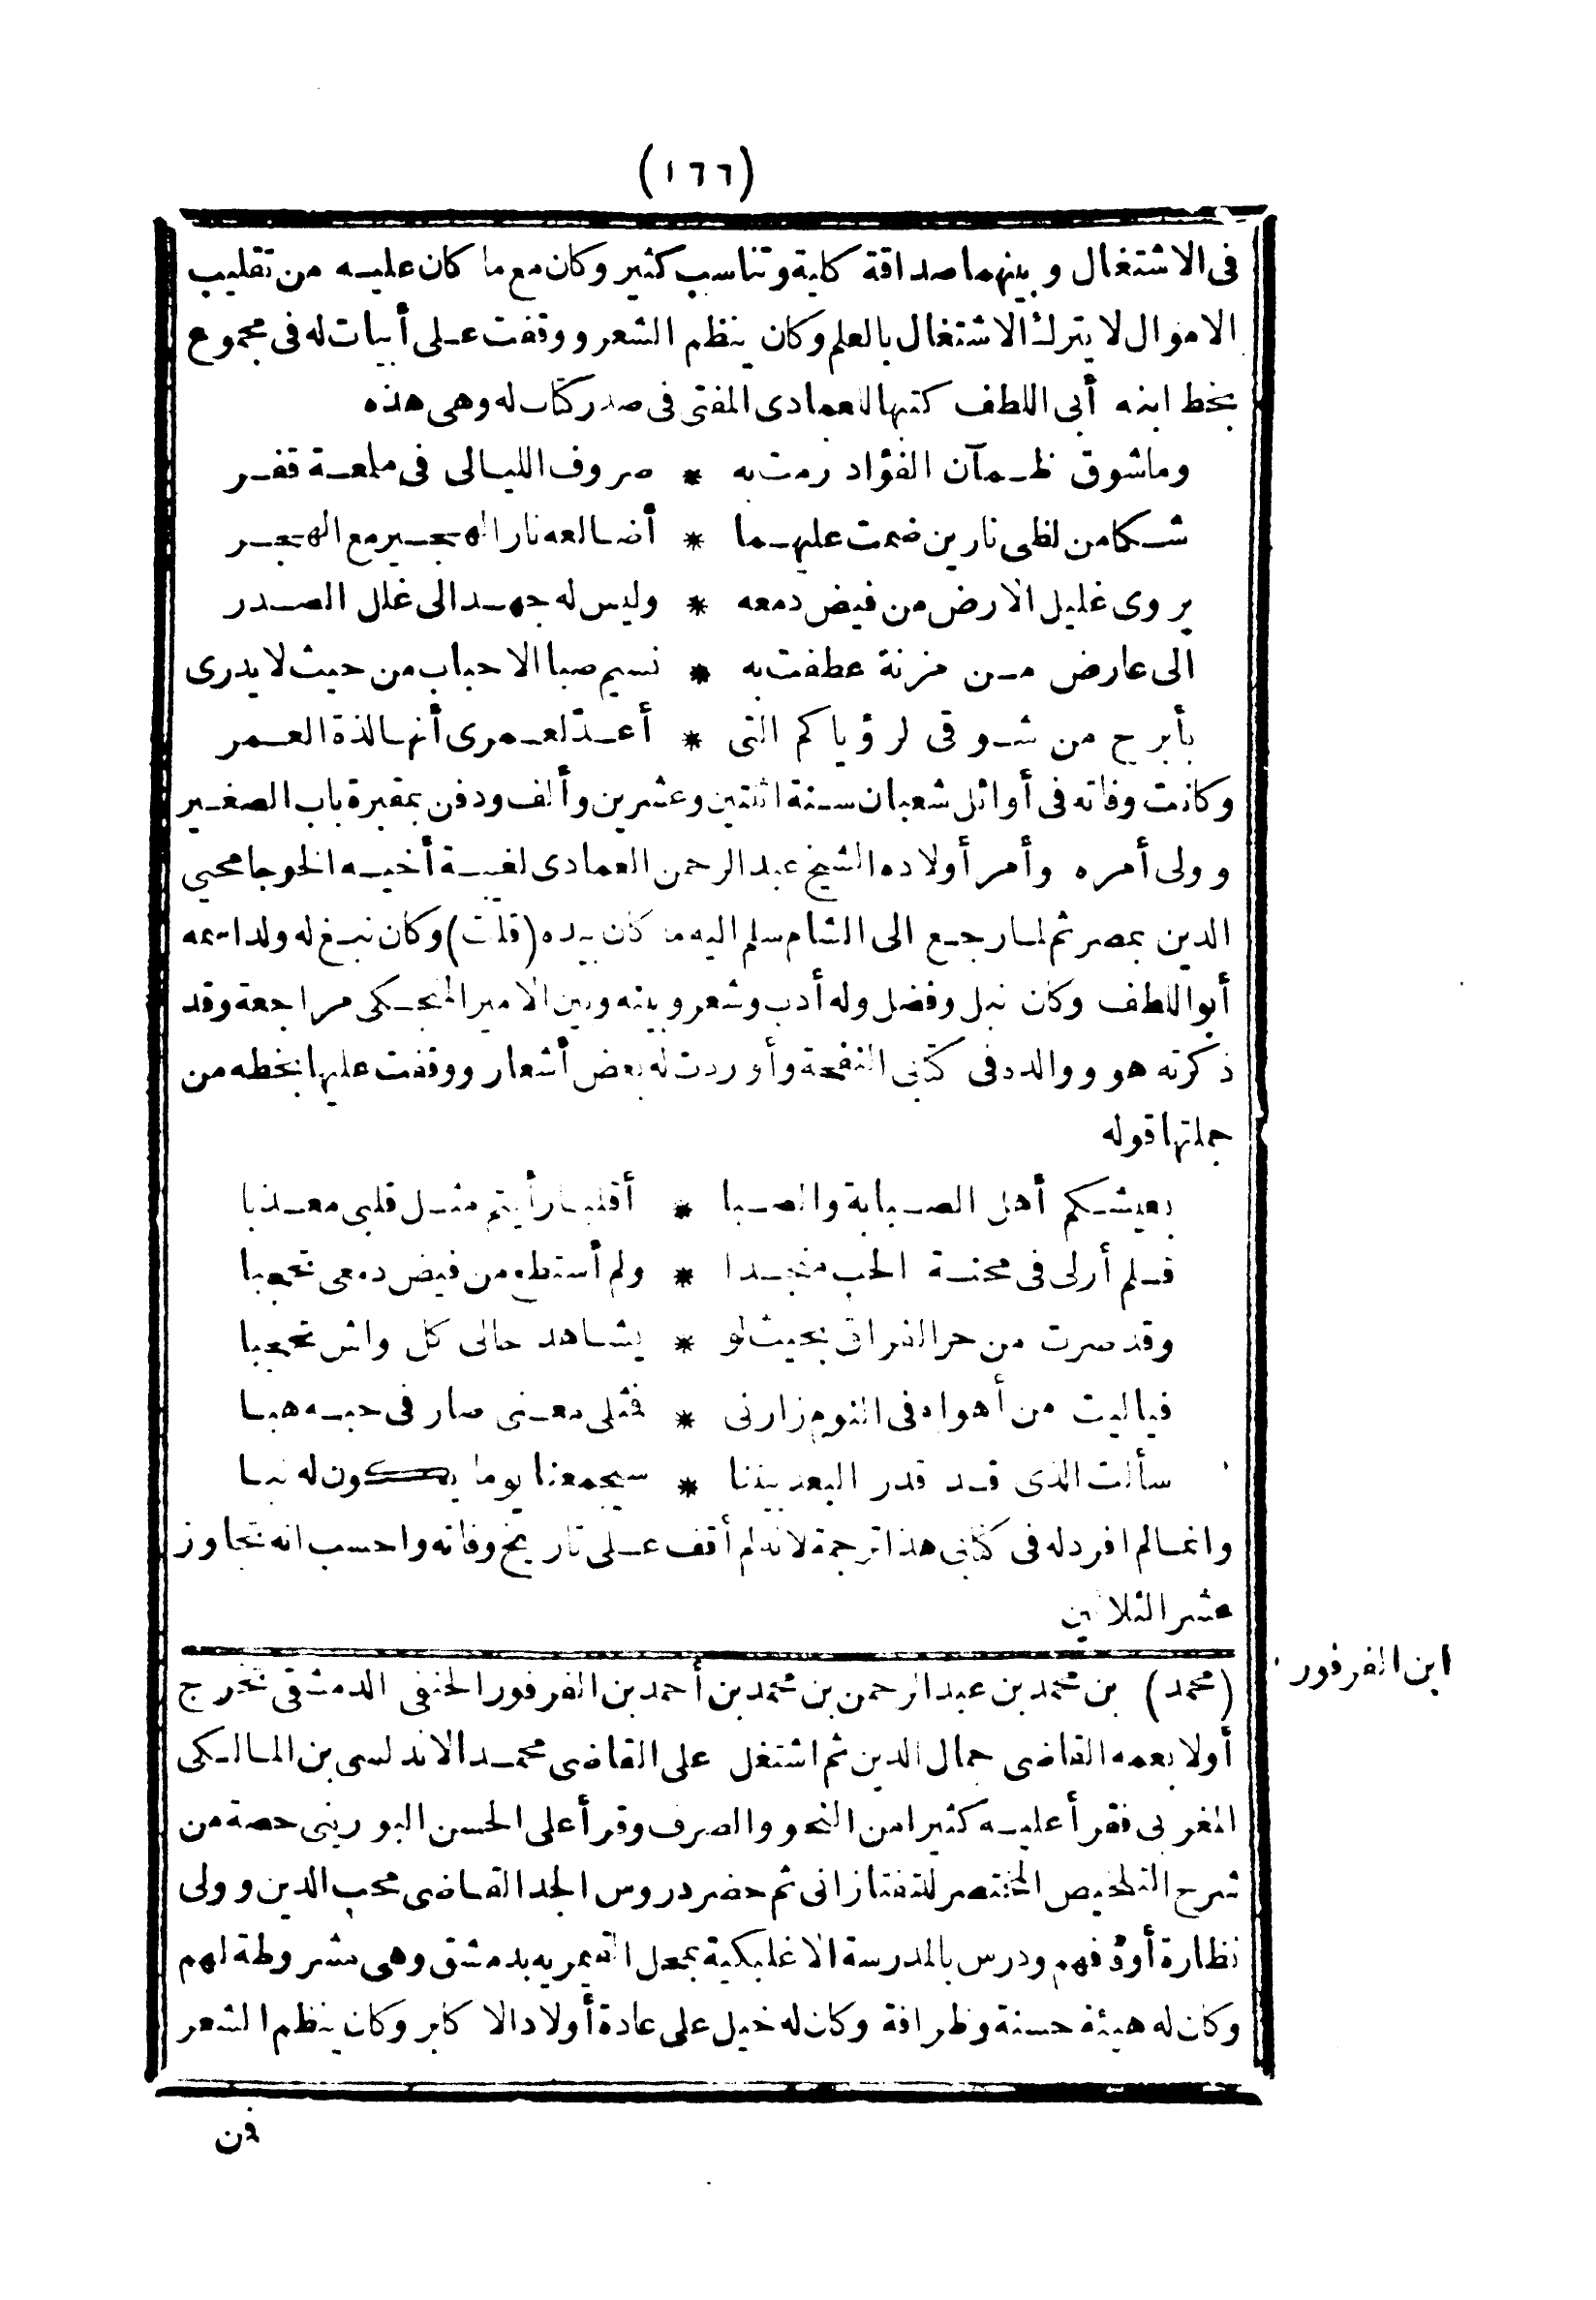 (١٦٦)
فى الاشتغال وبينهما صداقة كلية وتناسب كثير وكان مع ما كان عليه من تقليب
الاموال لا يترك الاشتغال بالعلم وكان ينظم الشعر ووقفت على أبيات له فى مجموع
بخط ابنه أبى اللطف كتبها للعمادى المفتى فى صدر كتاب له وهى هذه
وما شوق ظمآن الفؤاد رمت به * صروف الليالى فى ملعة قفر
شكا من لظى نارين ضمت عليهما * أضالعه نار الهجير مع الهجر
يروى غليل الارض من فيض دمعه * وليس له جهد الى غلل الصدر
الى عارض من مزنة عطفت به * نسيم صبا الاحباب من حيث لا يدرى
بأبرح من شوقى لرؤياكم التى * أعدّ لعمرى أنها لذة العمر
وكانت وفاته فى أوائل شعبان سنة اثنتين وعشرين وألف ودفن بمقبرة باب الصغير
وولى أمره وأمر أولاده الشيخ عبد الرحمن العمادى لغيبة أخيه الخوجا محيى
الدين بمصر ثم لما رجع الى الشام سلم اليه ما كان بيده (قلت) وكان نبغ له ولد اسمه
أبو اللطف وكان نبل وفضل وله أدب وشعر وبينه وبين الامير المنجكى مراجعة وقد
ذكرته هو ووالده فى كتابى النفحة وأوردت له بعض أشعار ووقفت عليها بخطه من
جملتها قوله
بعيشكم أهل الصبابة والصبا * أقلبا رأيتم مثل قلبى معذبا
فلم أر لى فى محنة الحب منجدا * ولم أستطع من فيض دمعى تحجبا
وقد صرت من حر الفراق بحيث لو * يشاهد حالى كل واش تعجبا
فياليت من أهواه فى النوم زارنى * فثلى معنى صار فى حبه هبا
سألت الذى قد قدر البعد بيننا * سيجمعنا يوما يكون له نبا
وانما لم افرد له فى كتابى هذا ترجمة لانه لم أقف على تاريخ وفاته واحسب انه تجاوز
عشر الثلاثين
ابن الفرفور
(محمد) بن محمد بن عبد الرحمن بن محمد بن أحمد بن الفرفور الحنفى الدمشقى تخرج
أولا بعمه القاضى جمال الدين ثم اشتغل على القاضى محمد الاندلسى بن المالكى
المغربى فقرأ عليه كثيرا من النحو والصرف وقرأ على الحسن البورينى حصة من
شرح التلخيص المختصر للتفتازانى ثم حضر دروس الجد القاضى محب الدين وولى
نظارة أوقفهم ودرس بالمدرسة الاغلبكية بمحل القيمريه بدمشق وهى مشروطة لهم
وكان له هيئة حسنة وظرافة وكان له خيل على عادة أولاد الاكابر وكان ينظم الشعر
فن